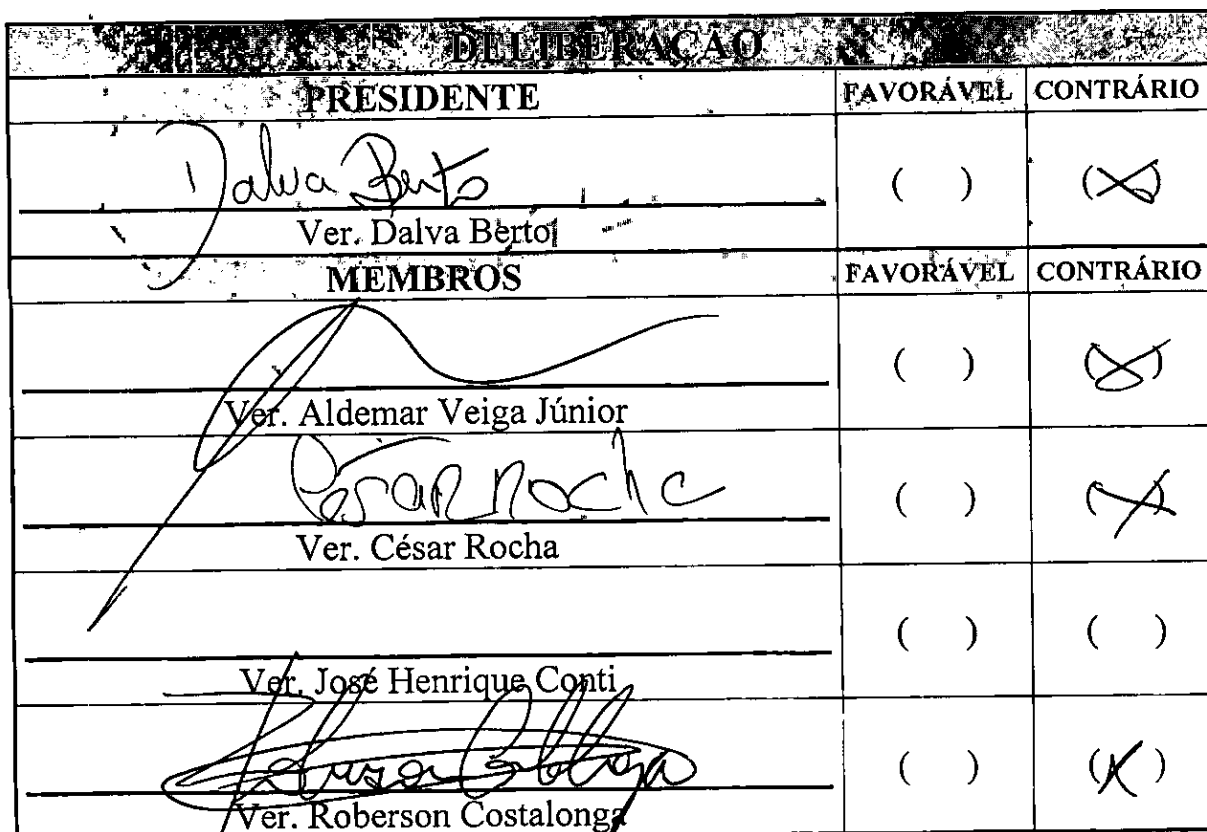 DELIBERAÇÃO
PRESIDENTE FAVORÁVEL CONTRÁRIO
Dalva Berto
( ) (X)
Ver. Dalva Berto
MEMBROS FAVORÁVEL CONTRÁRIO
( ) (X)
Ver. Aldemar Veiga Júnior
César Rocha
( ) (X)
Ver. César Rocha
( ) ( )
Ver. José Henrique Conti
( ) (X)
Ver. Roberson Costalonga